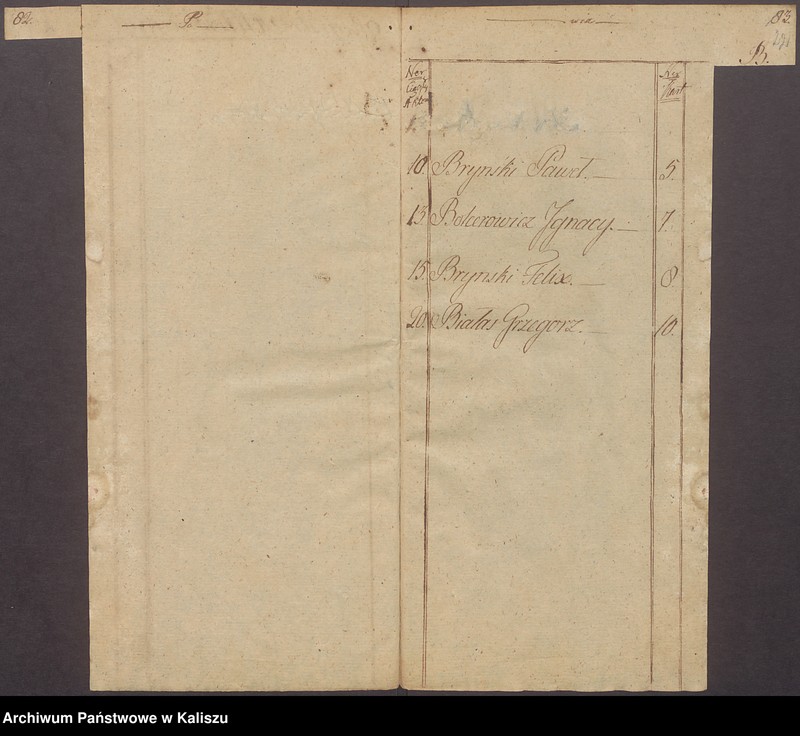 82.
P.
wia
83.
B.
Ner
Akt
Ner
Kart
10. Brynski Paweł. 5.
13 Bolcerowicz Jgnacy. 7.
15. Brynski Felix. 8
20. Białas Grzegorz. 10.
Archiwum Państwowe w Kaliszu